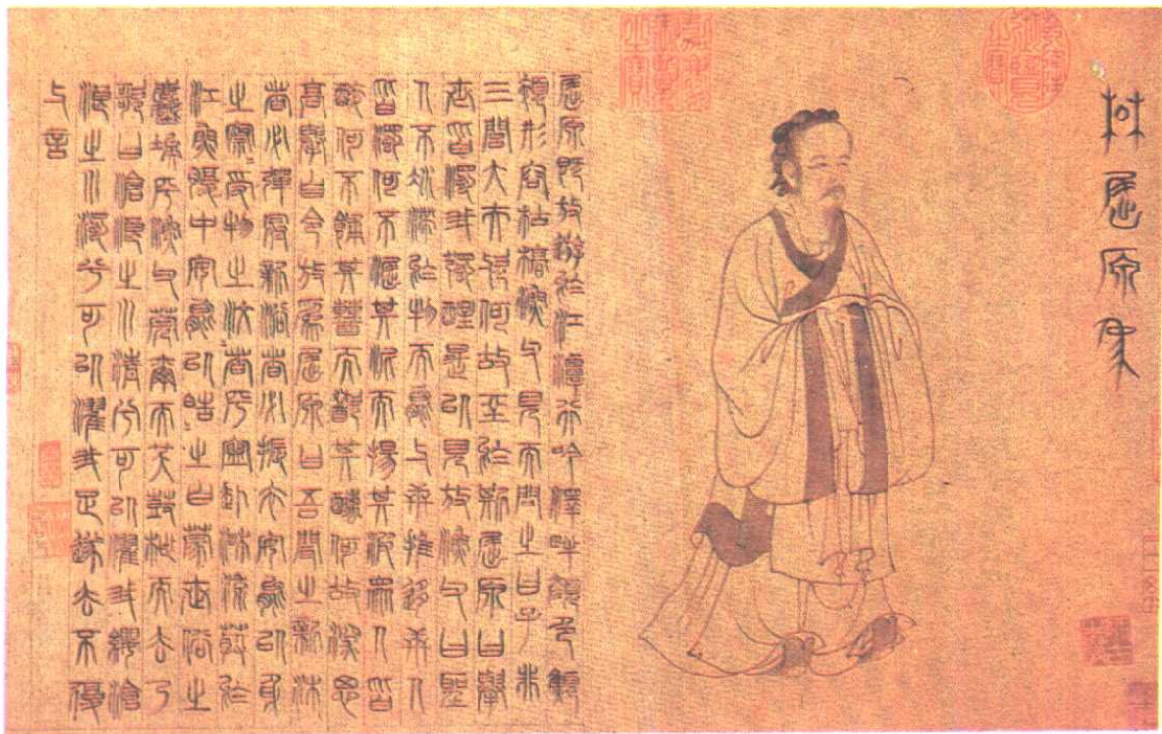 楚屈原象
屈原既放游於江潭行吟澤畔顏色顦
顇形容枯槁漁父見而問之曰子非
三閭大夫歟何故至於斯屈原曰舉
世皆濁我獨醒是以見放漁父曰聖
人不凝滯於物而能与世推移世人
皆濁何不淈其泥而揚其波衆人皆
醉何不餔其糟而歠其醨何故深思
高舉自令放為屈原曰吾聞之新沐
者必彈冠新浴者必振衣安能以身
之察受物之汶者乎寧赴湘流葬於
江魚腹中安能以皓之白蒙世俗之
塵埃乎漁父莞爾而笑鼓枻而去乃
歌曰滄浪之水清兮可以濯我纓滄
浪之水濁兮可以濯我足遂去不復
与言